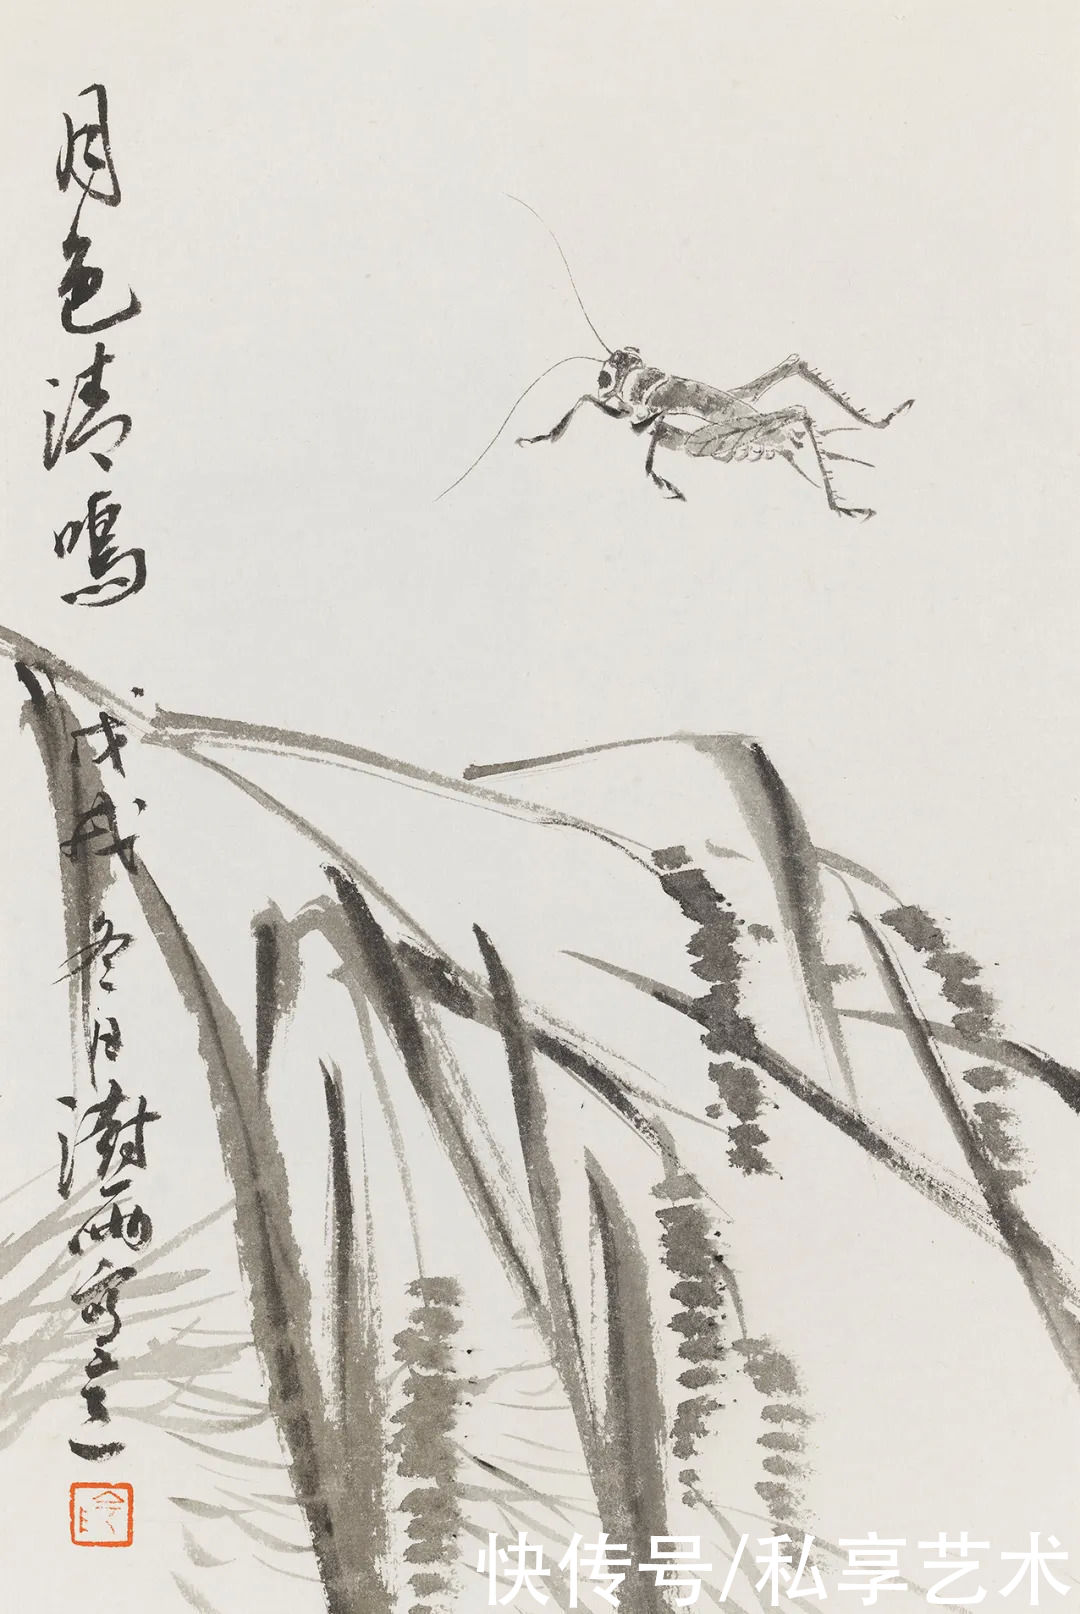 月色清鳴
戊戌冬月澍雨寫意
快传号/私享艺术